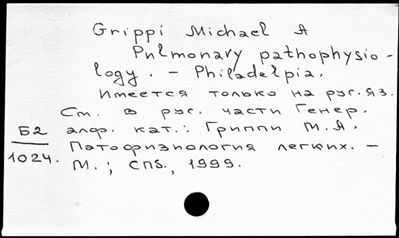 Grippi Michael A
Pulmonary pathophysio-
logy. - Philadelpia.
Имеется только на рус.яз.
См. в рус. части Генер.
Б2 алф. кат.: Гриппи М.А.
1024. Патофизиология легких. -
М.; СПб., 1999.